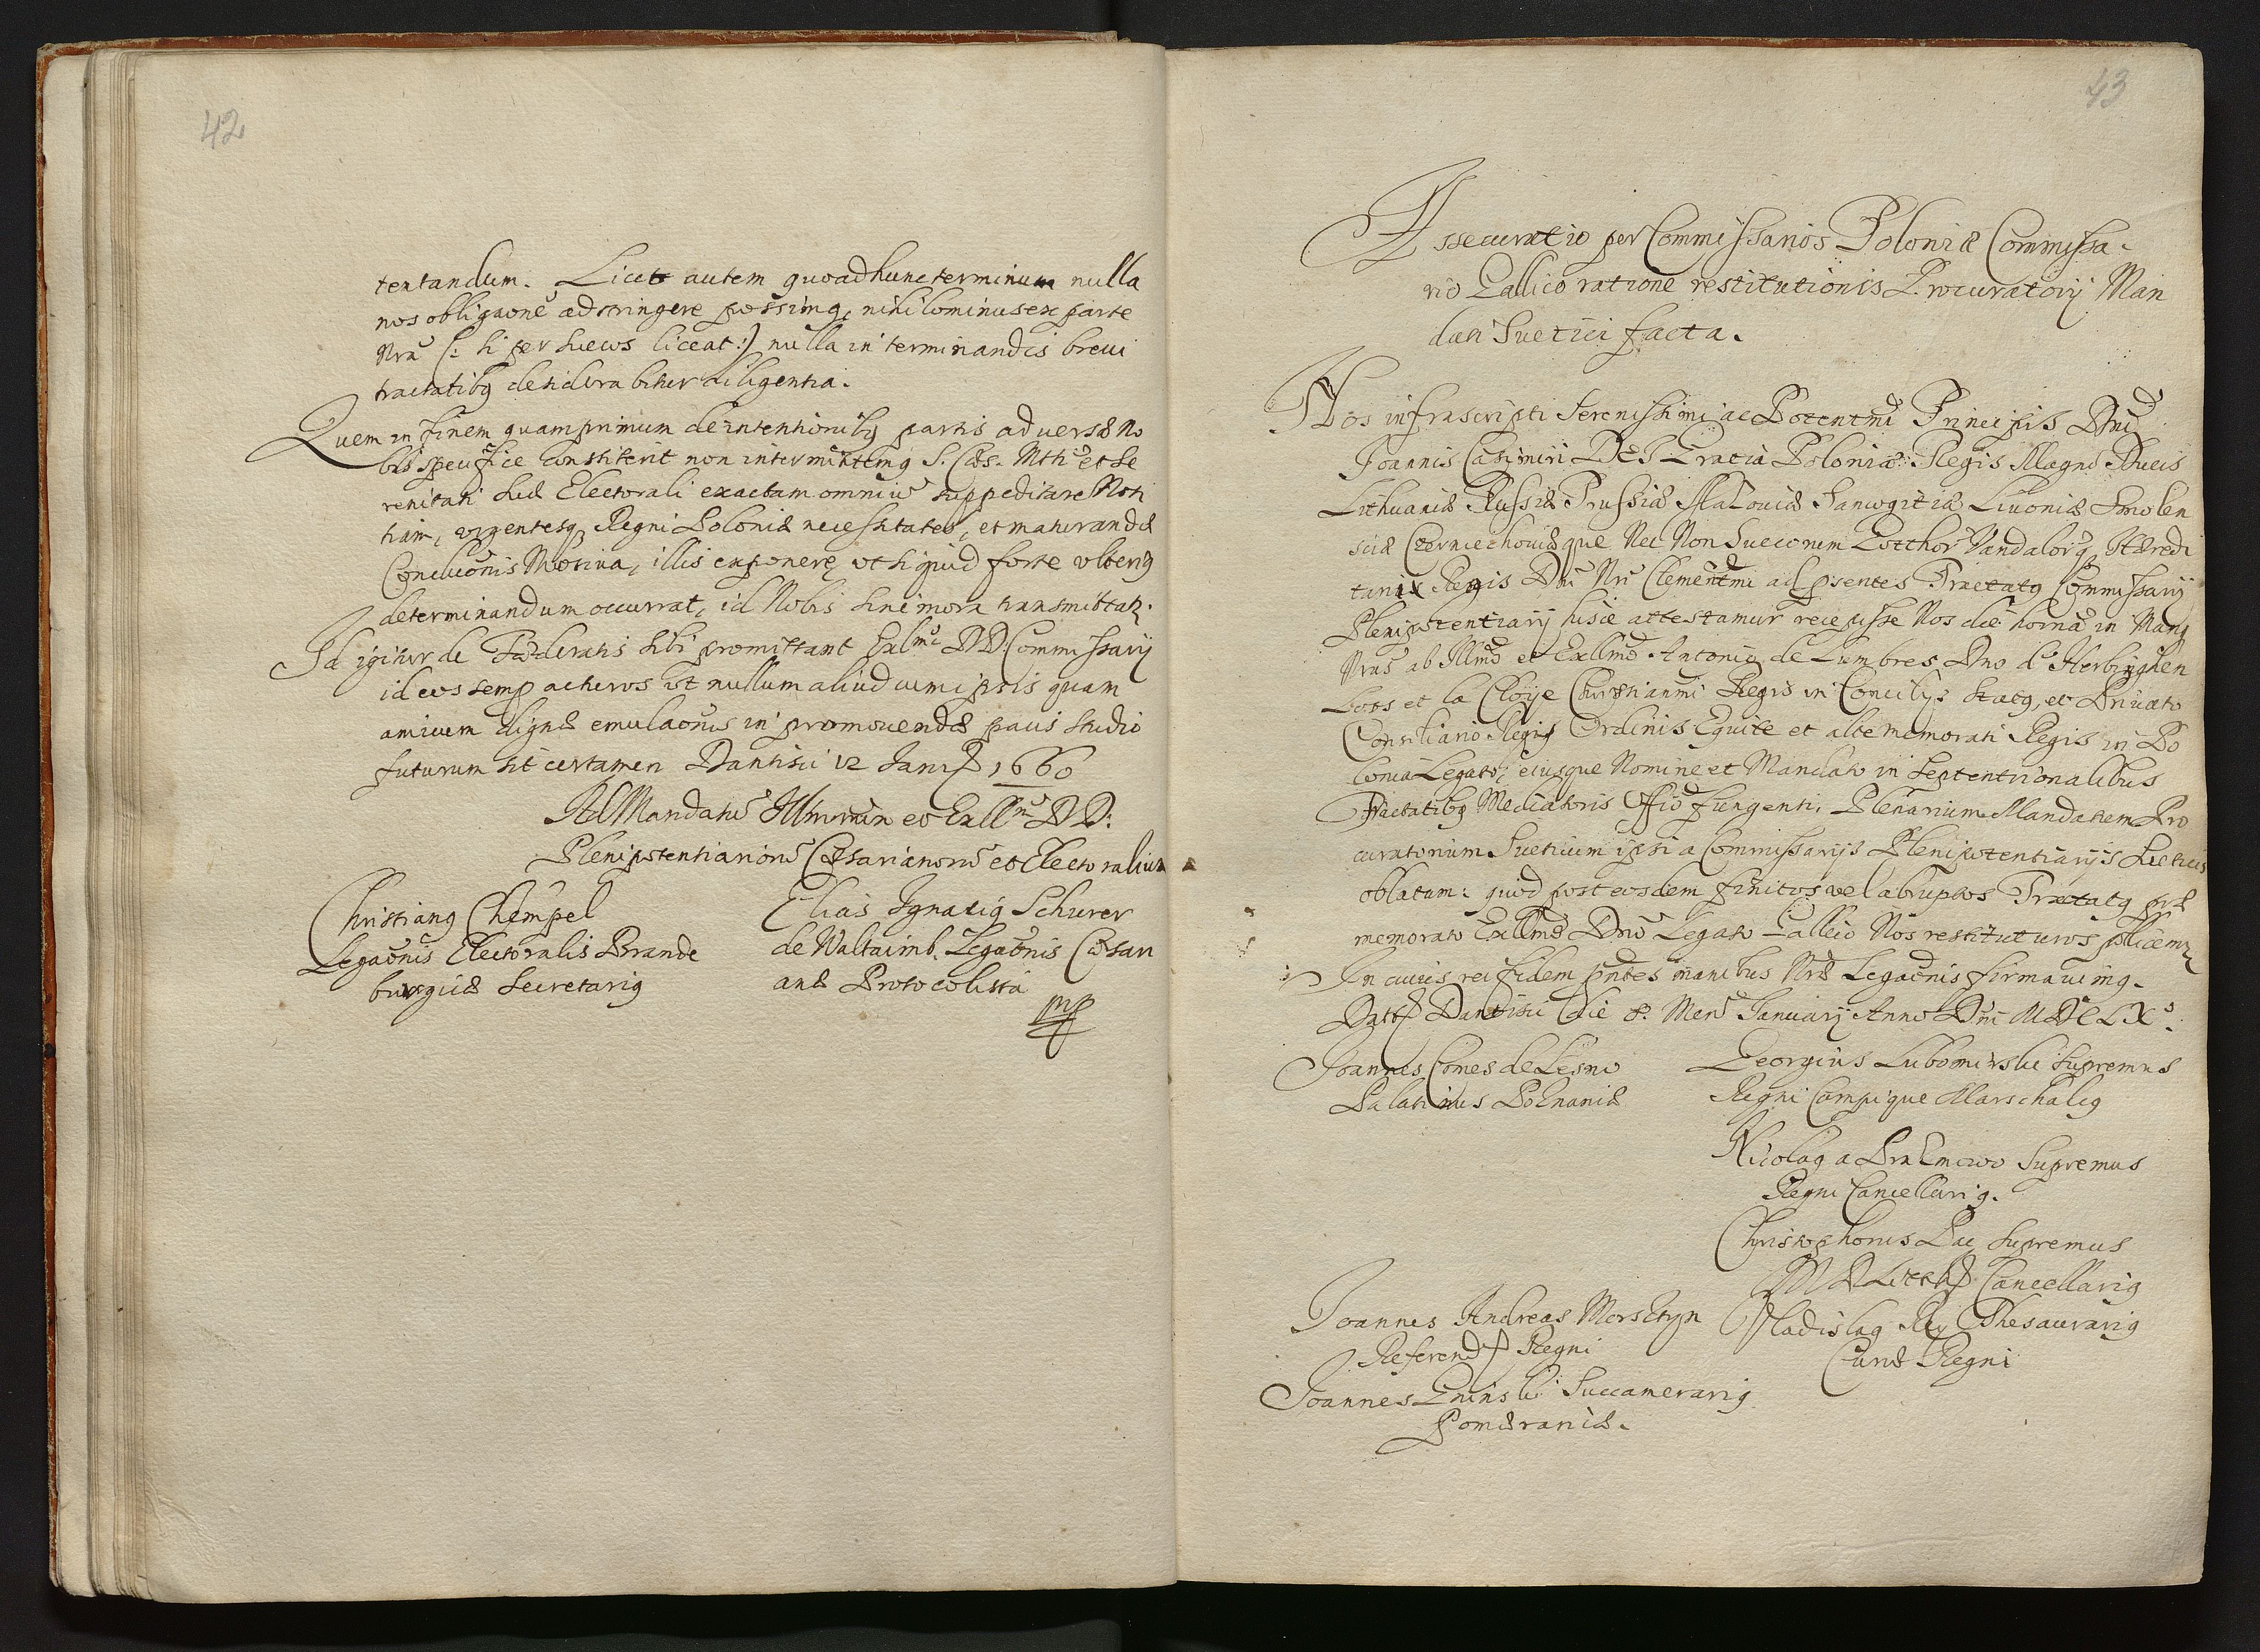 42
tentandum. Licet autem quoad hunc terminum nulla
nos obligaõne adstringere possimq, nihilominus ex parte
Nrã (: si per Suecos liceat :) nulla in terminandis brevi
tractatibq desiderabitur diligentia.
Quem in finem quamprimum de intentionibq partis adversæ No
bis specifice constiterit non intermittemq S. Cæs. Mtti et Se
renitati Suæ Electorali exactam omniũ suppeditare Noti
tiam, urgentesq Regni Poloniæ necessitates, et maturandæ
Conclusionis Motiva, illis exponere, ut si quid forte ulteriq
determinandum occurrat, id Nobis sine mora transmittatr.
Id igitur de Fæderatis sibi promittant Exlmi DD. Commissarij
id eos semp acturos ut nullum aliud cum ipsis quam
amicum dignæ emulaõnis in promovendæ pacis studio
futurum sit certamen Dantisci 12 Januar 1660
Ad Mandatũ Illmorum et Exllm DD:
Plenipotentiariorũ Cæsarianorũ et Electoralium
Christianq Chempel
Legaõnis Electoralis Brande
burgicæ Secretariq
Elias Ignatiq Schurer
de Waltaimb. Legaõnis Cæsari
anæ Protocolista
mp
43
Assecuratio per Commissarios Poloniæ Commissa-
rio Gallico ratione restitutionis Procuratorij Man
dati Suetici facta.
Nos infrascripti Serenissimi ac Potentmi Principis Dni
Joannis Casimiri DEI Gratia Poloniæ Regis Magni Ducis
Lithuaniæ Russiæ Prussiæ Masoviæ Samogitiæ Livoniæ Smolen
sciæ Czerniechoviæque Nec Non Suecorum Gotthor Vandalorq Hæredi
tarij Regis Dni Nri Clementmi ad psentes Tractatq Commissarij
Plenipotentiarij hisce attestamur recepisse Nos die hoina in Manq
Nras ab Illmo et Exllmo Antonio de Lumbres Dno d' Herbinghen
Loos et la Cloye Christianmi Regis in Concilijs Statq, et Privato
Consiliario Regij Ordinis Equite et alte memorati Regis in Po
lonia Legato, eiusque Nomine et Mandato in Septentrionalibus
Tractatibq Mediatoris Offio fungenti, Plenarium Mandatum Pro
curatorium Sueticum ipsi a Commissarijs Plenipotentiarijs Sueticis
oblatum: quod post eosdem finitos vel abruptos Tractatq præ
memorato Exllmo Dno Legato Gallico Nos restituturos pollicemr
In cuius rei fidem pntes manibus Nris Legaõnis firmavimq.
Datt Dantisci die 8. Mens Januarij Anno Dni MDCLXo.
Joannes Comes de Lesno
Palatinus Posnaniæ
Georgius Lubomirski Supremus
Regni Campique Marschalcq
Nicolaq a Prazmowo Supremus
Regni Cancellariq.
Christophorus Pac Supremus
M D Litth Cancellariq
Joannes Andreas Morsztyn
Referend Regni
Vladislaq Rey Thesaurariq
Curiæ Regni
Joannes Gninski Succamerariq
Pomeraniæ.